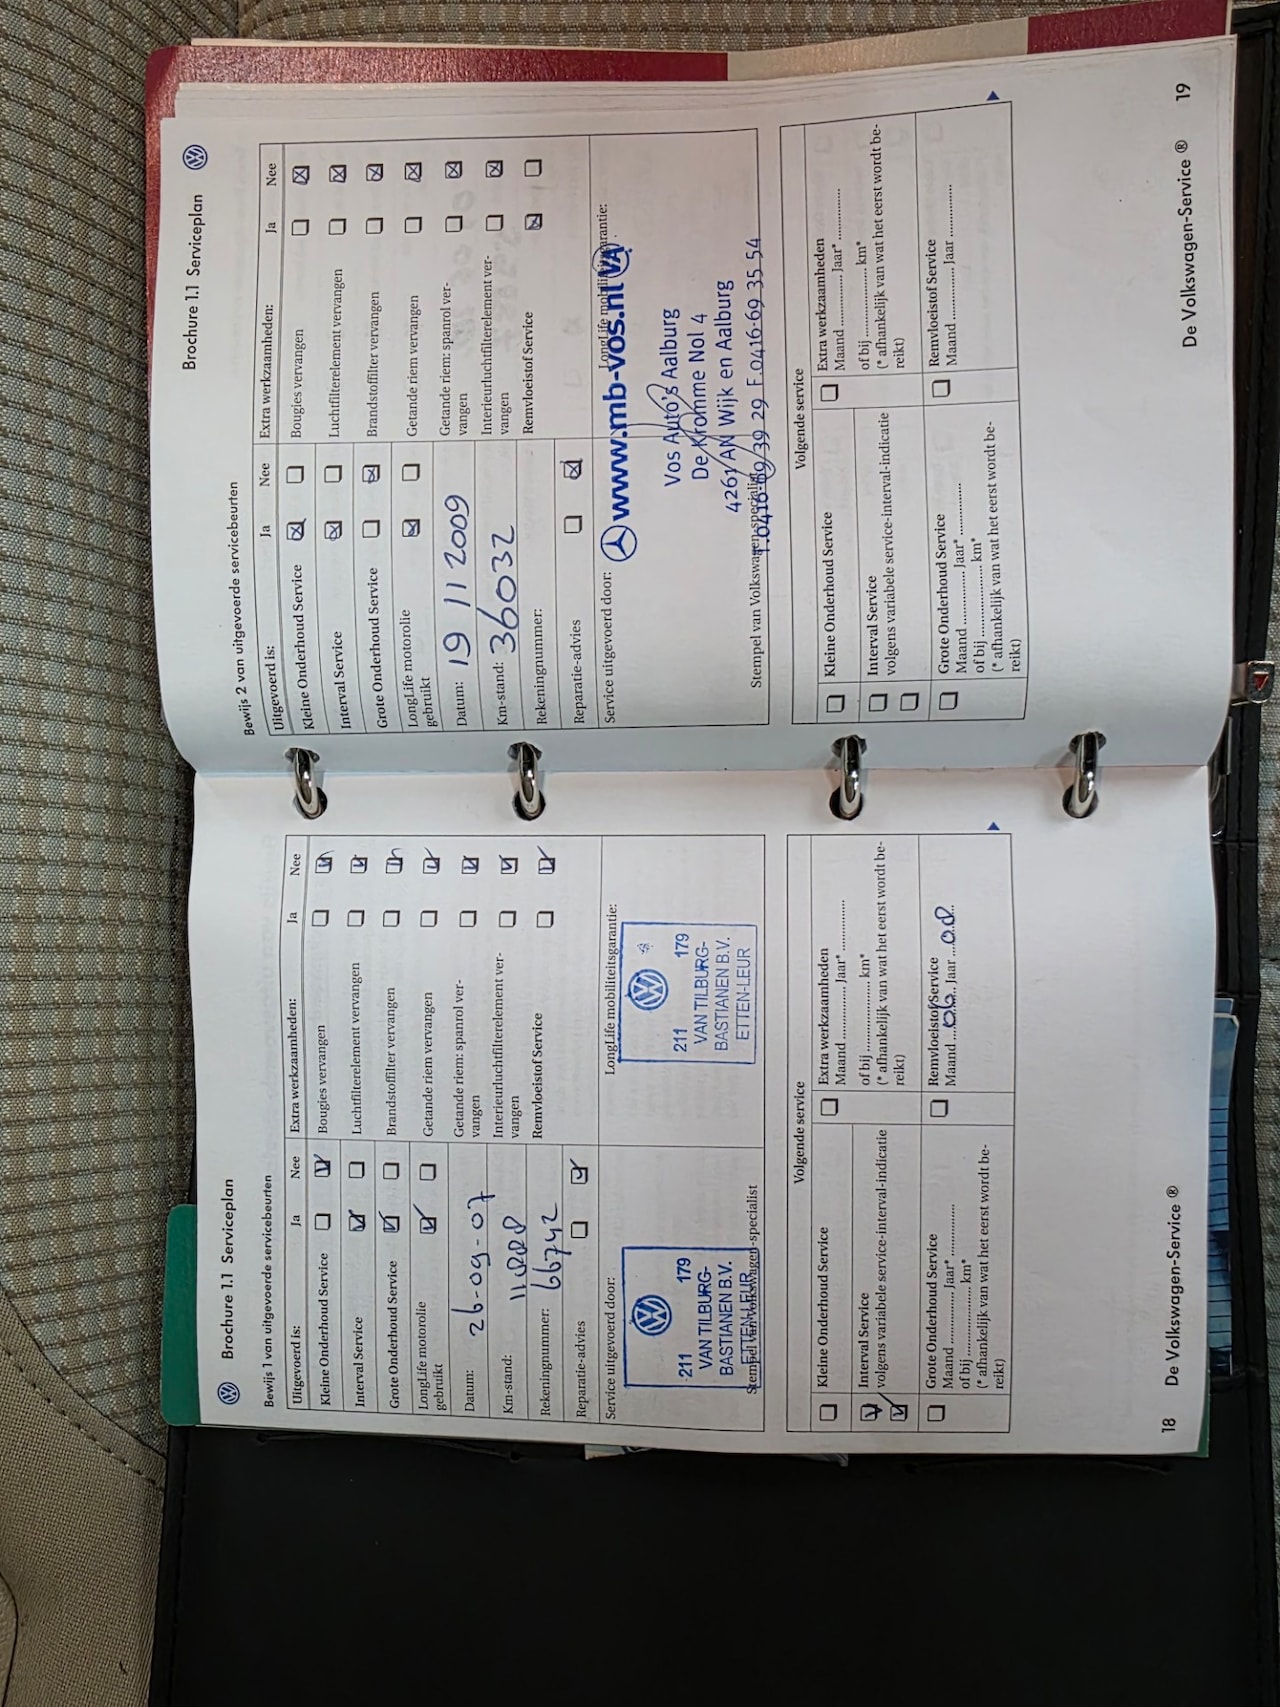 Brochure 1.1 Serviceplan
Bewijs 1 van uitgevoerde servicebeurten
Uitgevoerd is: Ja Nee
Kleine Onderhoud Service
Interval Service
Grote Onderhoud Service
LongLife motorolie
gebruikt
Datum: 26-09-07
Km-stand:
Rekeningnummer: 66742
Reparatie-advies
Extra werkzaamheden: Ja Nee
Bougies vervangen
Luchtfilterelement vervangen
Brandstoffilter vervangen
Getande riem vervangen
Getande riem: spanrol ver-
vangen
Interieurluchtfilterelement ver-
vangen
Remvloeistof Service
Service uitgevoerd door:
211 179
VAN TILBURG-
BASTIANEN B.V.
ETTEN-LEUR
Stempel van Volkswagen-specialist
LongLife mobiliteitsgarantie:
211 179
VAN TILBURG-
BASTIANEN B.V.
ETTEN-LEUR
Volgende service
Kleine Onderhoud Service
Interval Service
volgens variabele service-interval-indicatie
Grote Onderhoud Service
Maand .............. Jaar* ..............
of bij .................... km*
(* afhankelijk van wat het eerst wordt be-
reikt)
Extra werkzaamheden
Maand .............. Jaar* ..............
of bij .................... km*
(* afhankelijk van wat het eerst wordt be-
reikt)
Remvloeistof Service
Maand ....06.... Jaar ....08....
18 De Volkswagen-Service ®
Brochure 1.1 Serviceplan
Bewijs 2 van uitgevoerde servicebeurten
Uitgevoerd is: Ja Nee
Kleine Onderhoud Service
Interval Service
Grote Onderhoud Service
LongLife motorolie
gebruikt
Datum: 19 11 2009
Km-stand: 36032
Rekeningnummer:
Reparatie-advies
Extra werkzaamheden: Ja Nee
Bougies vervangen
Luchtfilterelement vervangen
Brandstoffilter vervangen
Getande riem vervangen
Getande riem: spanrol ver-
vangen
Interieurluchtfilterelement ver-
vangen
Remvloeistof Service
Service uitgevoerd door:
LongLife mobiliteitsgarantie:
www.mb-vos.nl VA
Vos Auto's Aalburg
De Kromme Nol 4
4261 AN Wijk en Aalburg
T.0416-69 39 29 F.0416-69 35 54
Stempel van Volkswagen-specialist
Volgende service
Kleine Onderhoud Service
Interval Service
volgens variabele service-interval-indicatie
Grote Onderhoud Service
Maand .............. Jaar* ..............
of bij .................... km*
(* afhankelijk van wat het eerst wordt be-
reikt)
Extra werkzaamheden
Maand .............. Jaar* ..............
of bij .................... km*
(* afhankelijk van wat het eerst wordt be-
reikt)
Remvloeistof Service
Maand .............. Jaar ..............
De Volkswagen-Service ® 19